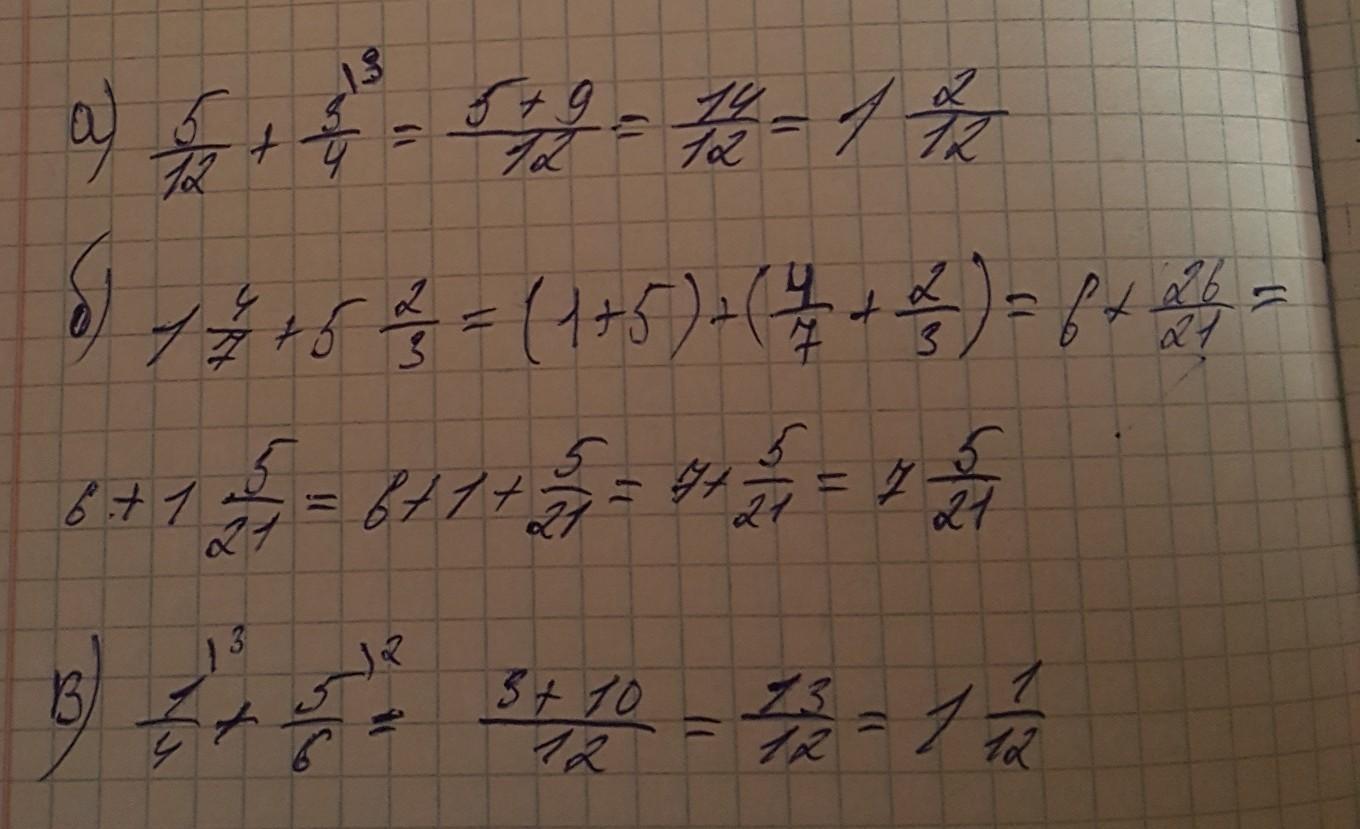 а) 5/12 + 3/4\3 = 5+9/12 = 14/12 = 1 2/12
б) 1 4/7 + 5 2/3 = (1+5)+(4/7 + 2/3) = 6 + 26/21 =
6 + 1 5/21 = 6+1+ 5/21 = 7+ 5/21 = 7 5/21
в) 1/4\3 + 5/6\2 = 3+10/12 = 13/12 = 1 1/12